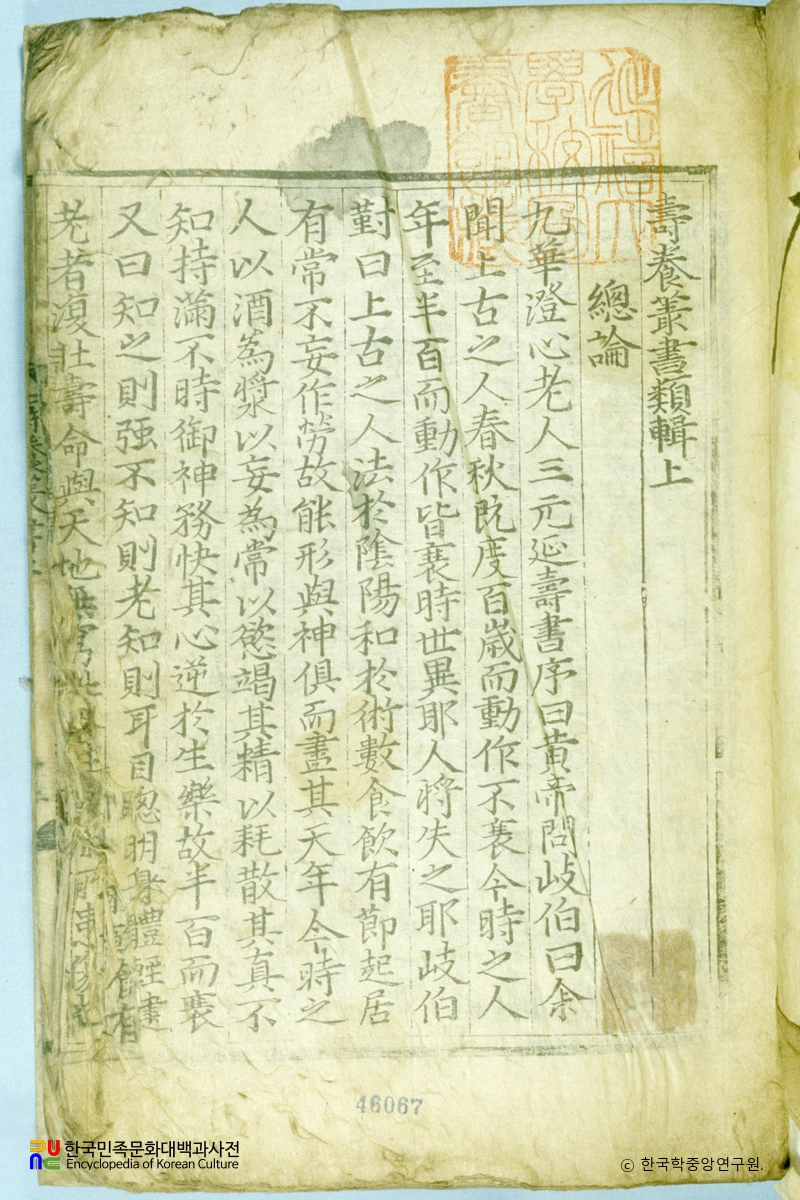 壽養叢書類輯上
總論
九華澄心老人三元延壽書序曰黃帝問歧伯曰余
聞上古之人春秋旣度百歲而動作不衰今時之人
年至半百而動作皆衰時世異耶人將失之耶歧伯
對曰上古之人法於陰陽和於術數食飮有節起居
有常不妄作勞故能形與神俱而盡其天年今時之
人以酒爲漿以妄爲常以慾竭其精以耗散其眞不
知持滿不時御神務快其心逆於生樂故半百而衰
又曰知之則强不知則老知則耳目聰明身體輕
老者復壯壽命與天地
46067
한국민족문화대백과사전
Encyclopedia of Korean Culture
© 한국학중앙연구원.